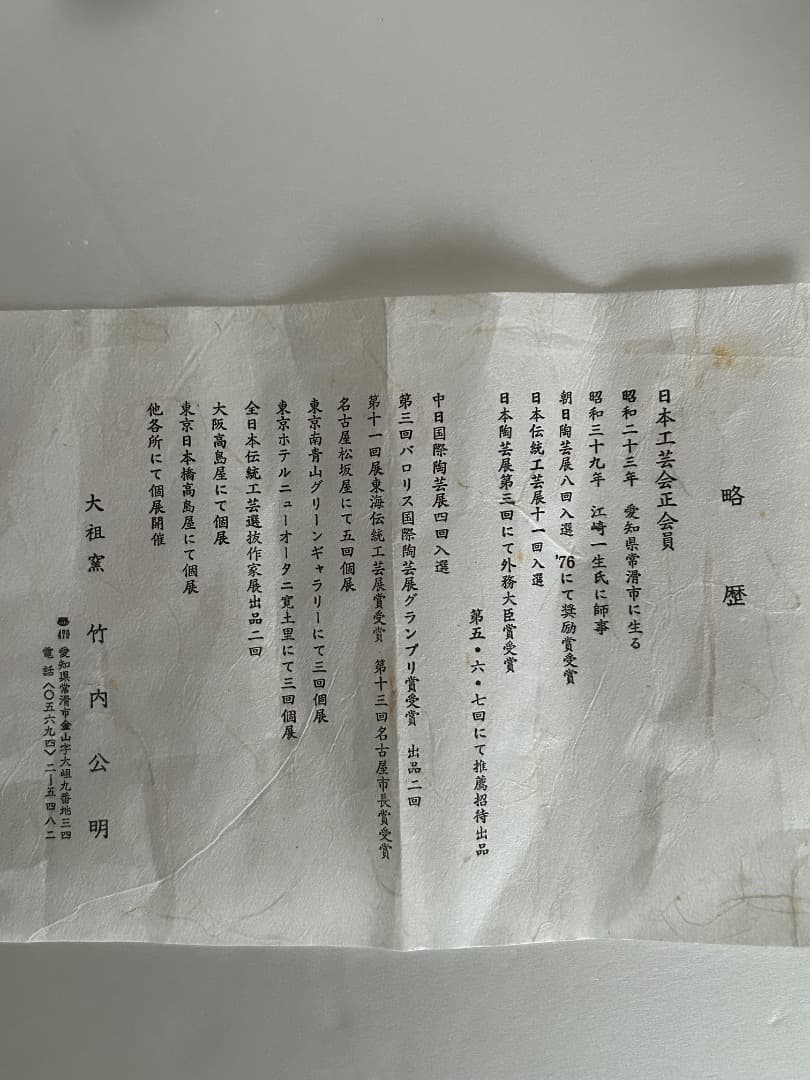 略歴
日本工芸会正会員
昭和二十三年 愛知県常滑市に生る
昭和三十九年 江崎一生氏に師事
朝日陶芸展八回入選 '76にて奨励賞受賞
日本伝統工芸展十一回入選
日本陶芸展第三回にて外務大臣賞受賞
第五・六・七回にて推薦招待出品
中日国際陶芸展四回入選
第三回バロリス国際陶芸展グランプリ賞受賞 出品二回
第十一回展東海伝統工芸展賞受賞 第十三回名古屋市長賞受賞
名古屋松坂屋にて五回個展
東京南青山グリーンギャラリーにて三回個展
東京ホテルニューオータニ寛土里にて三回個展
全日本伝統工芸選抜作家展出品二回
大阪高島屋にて個展
東京日本橋高島屋にて個展
他各所にて個展開催
大祖窯 竹内公明
〠479 愛知県常滑市金山字大岨九番地三四
電話〈〇五六九四〉二ー五四八二